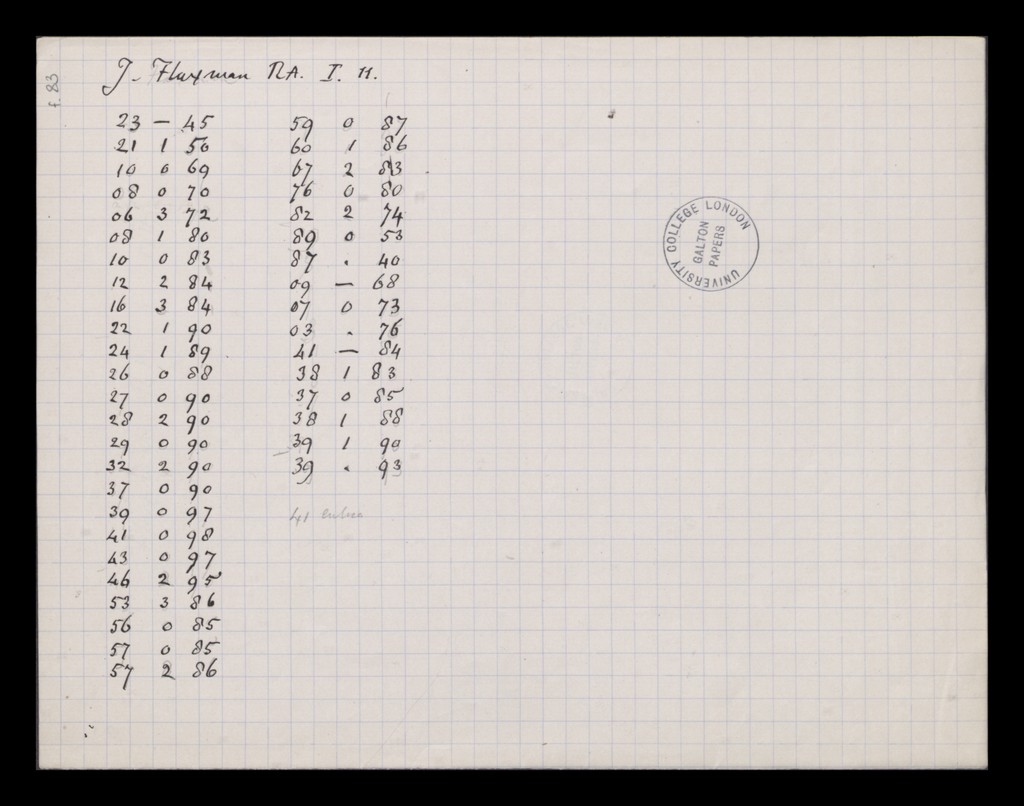 f. 83
J. Flaxman RA. I. 11.
23 — 45
21 1 50
10 0 69
08 0 70
06 3 72
08 1 80
10 0 83
12 2 84
16 3 84
22 1 90
24 1 89
26 0 88
27 0 90
28 2 90
29 0 90
32 2 90
37 0 90
39 0 97
41 0 98
43 0 97
46 2 95
53 3 86
56 0 85
57 0 85
57 2 86
59 0 87
60 1 86
67 2 83
76 0 80
82 2 74
89 0 53
87 . 40
09 — 68
07 0 73
03 . 76
41 — 84
38 1 83
37 0 85
38 1 88
39 1 90
39 . 93
41
UNIVERSITY COLLEGE LONDON
GALTON
PAPERS